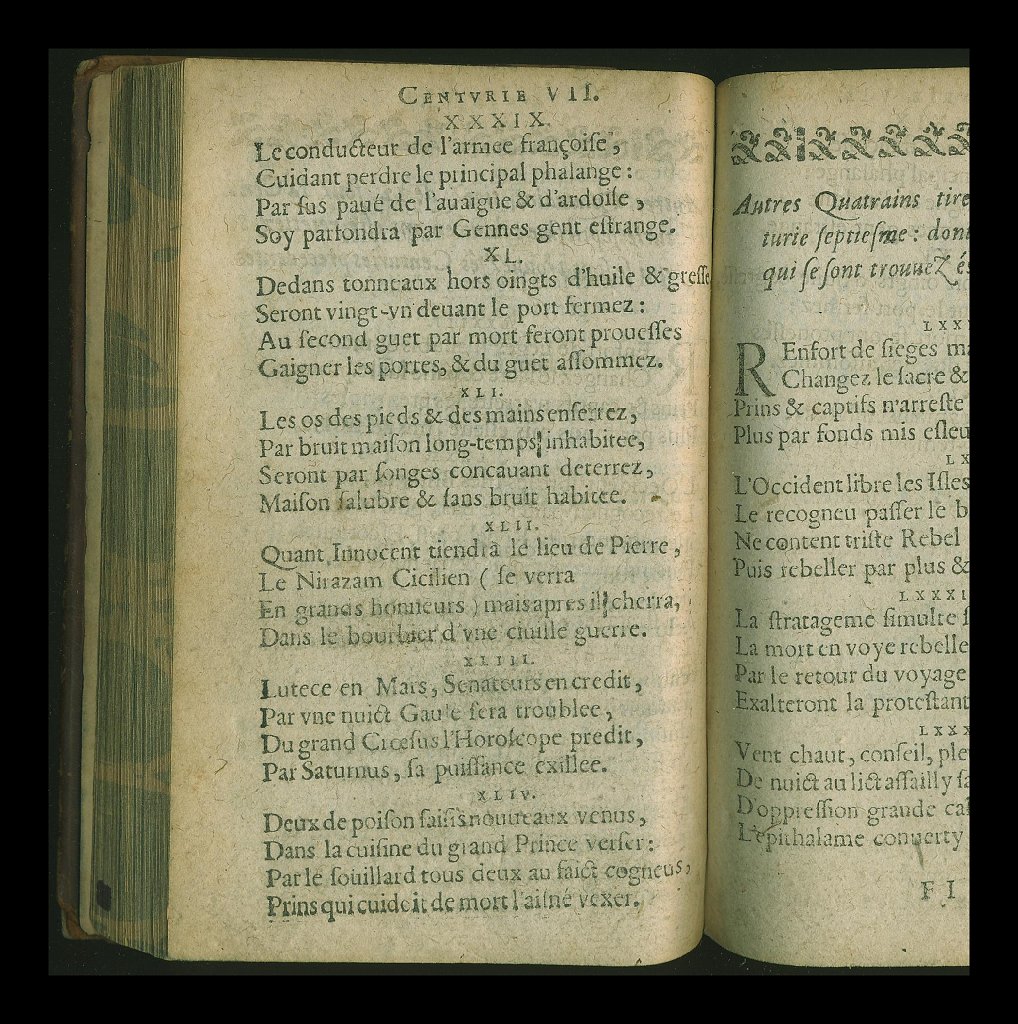 CENTVRIE VII.
XXXIX.
Le conducteur de l'armee françoiſe,
Cuidant perdre le principal phalange:
Par ſus paué de l'auaigne & d'ardoiſe,
Soy parfondra par Gennes gent eſtrange.
XL.
Dedans tonneaux hors oingts d'huile & greſſe
Seront vingt-vn deuant le port fermez:
Au ſecond guet par mort feront proueſſes
Gaigner les portes, & du guet aſſommez.
XLI.
Les os des pieds & des mains enſerrez,
Par bruit maiſon long-temps inhabitee,
Seront par ſonges concauant deterrez,
Maiſon ſalubre & ſans bruit habitee.
XLII.
Quant Innocent tiendra le lieu de Pierre,
Le Nirazam Cicilien ( ſe verra
En grands honneurs ) mais apres il cherra,
Dans le bourbier d'vne ciuille guerre.
XLIII.
Lutece en Mars, Senateurs en credit,
Par vne nuict Gaule ſera troublee,
Du grand Crœſus l'Horoſcope predit,
Par Saturnus, ſa puiſſance exillee.
XLIV.
Deux de poiſon ſaiſis nouueaux venus,
Dans la cuiſine du grand Prince verſer:
Par le ſouillard tous deux au faict cogneus,
Prins qui cuidoit de mort l'aiſné vexer.
Autres Quatrains tire
turie ſeptieſme: dont
qui ſe ſont trouuez és
LXX
REnfort de ſieges ma
Changez le ſacre &
Prins & captifs n'arreſte
Plus par fonds mis eſleu
LX
L'Occident libre les Iſles
Le recogneu paſſer le b
Ne content triſte Rebel
Puis rebeller par plus &
LXXXI
La ſtratageme ſimulte ſ
La mort en voye rebelle
Par le retour du voyage
Exalteront la proteſtant
LXXX
Vent chaut, conſeil, ple
De nuict au lict aſſailly ſa
D'oppreſſion grande cal
L'epithalame conuerty
FI